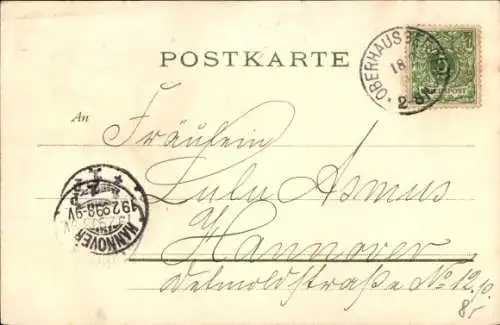 POSTKARTE
OBERHAUSBERGEN
18
2
REICHSPOST
An
Fräulein
Lulu Asmus
Hannover
Detmoldstraße No 12
HANNOVER
19.2.98.8-9V.
8,-